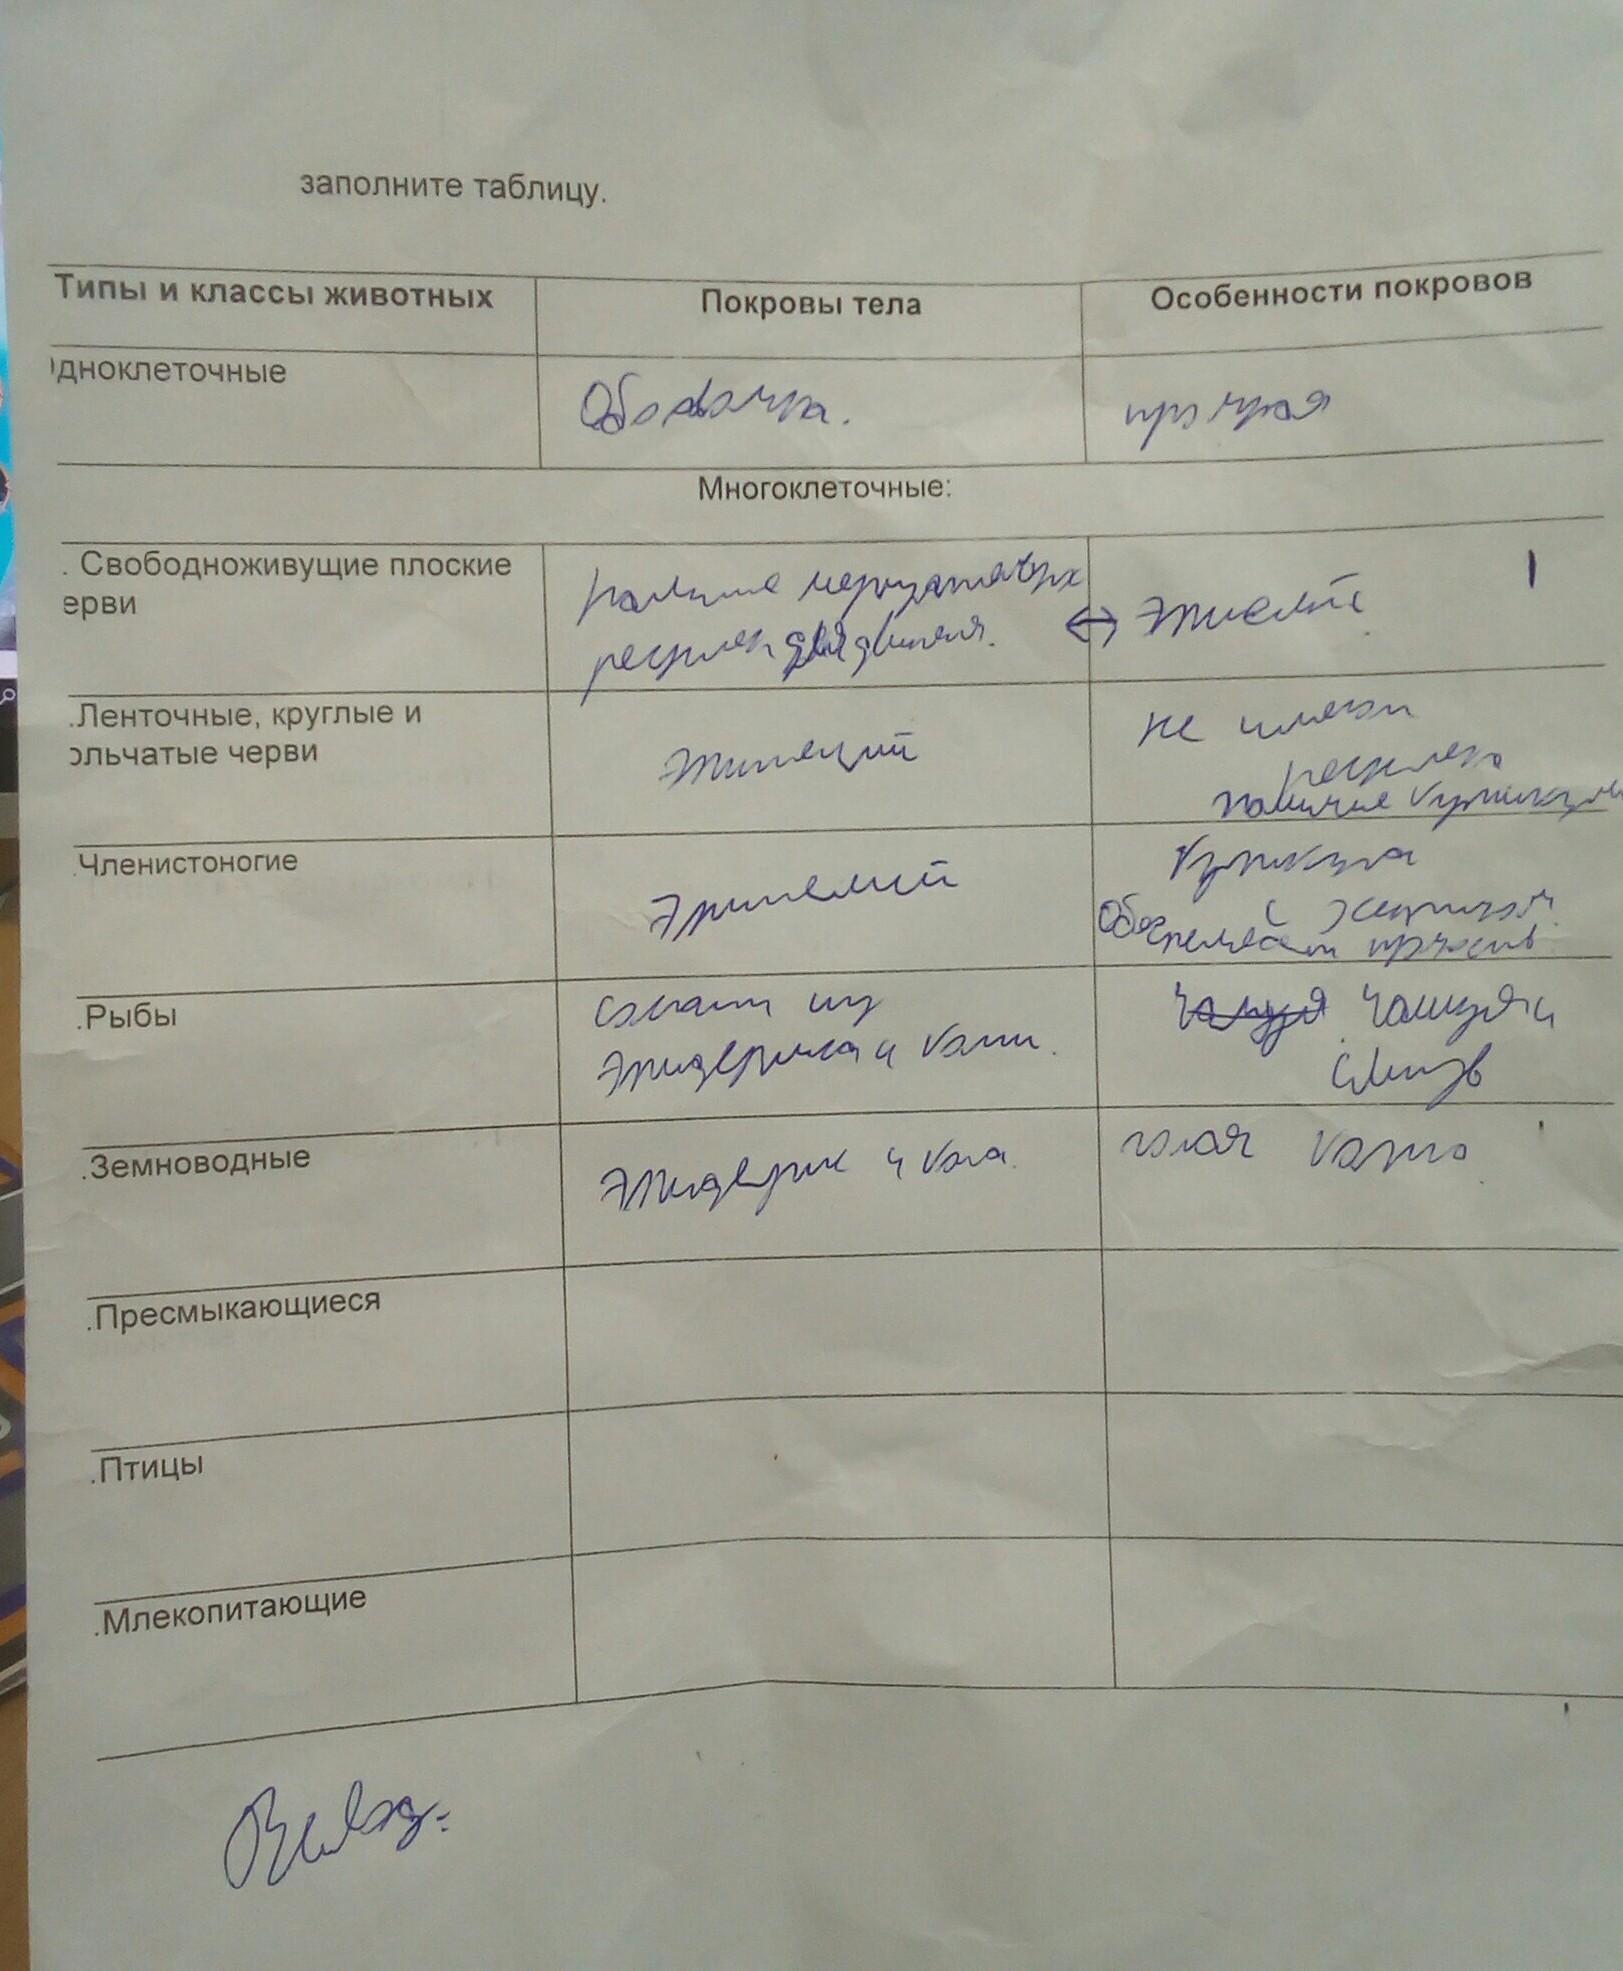 заполните таблицу.
Типы и классы животных Покровы тела Особенности покровов
дноклеточные Оболочка. прочная
Многоклеточные:
. Свободноживущие плоские наличие мерцательных
ерви ресничек для движения. ↔ эпителий
.Ленточные, круглые и не имеют
ольчатые черви эпителий ресничек
наличие кутикулы
.Членистоногие эпителий кутикула
с хитином
Обеспечивает прочность
.Рыбы состоит из чешуя и
эпидермиса и кожи. слизь
.Земноводные эпидермис и кожа. голая кожа
.Пресмыкающиеся
.Птицы
.Млекопитающие
Вывод: